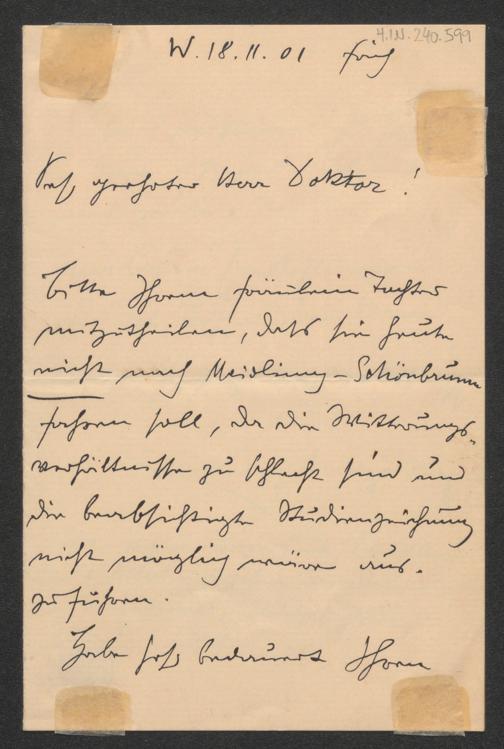 H.I.N. 240.599
W. 18.11.01 früh
Sehr geehrter Herr Doktor!
Bitte Ihrem Fräulein Tochter
mitzutheilen, daß sie heute
nicht nach Meidling-Schönbrunn
fahren soll, da die Witterungs-
verhältnisse zu schlecht sind und
die beabsichtigte Studienzeichnung
nicht möglich wäre aus-
zuführen.
Habe sehr bedauert Ihren